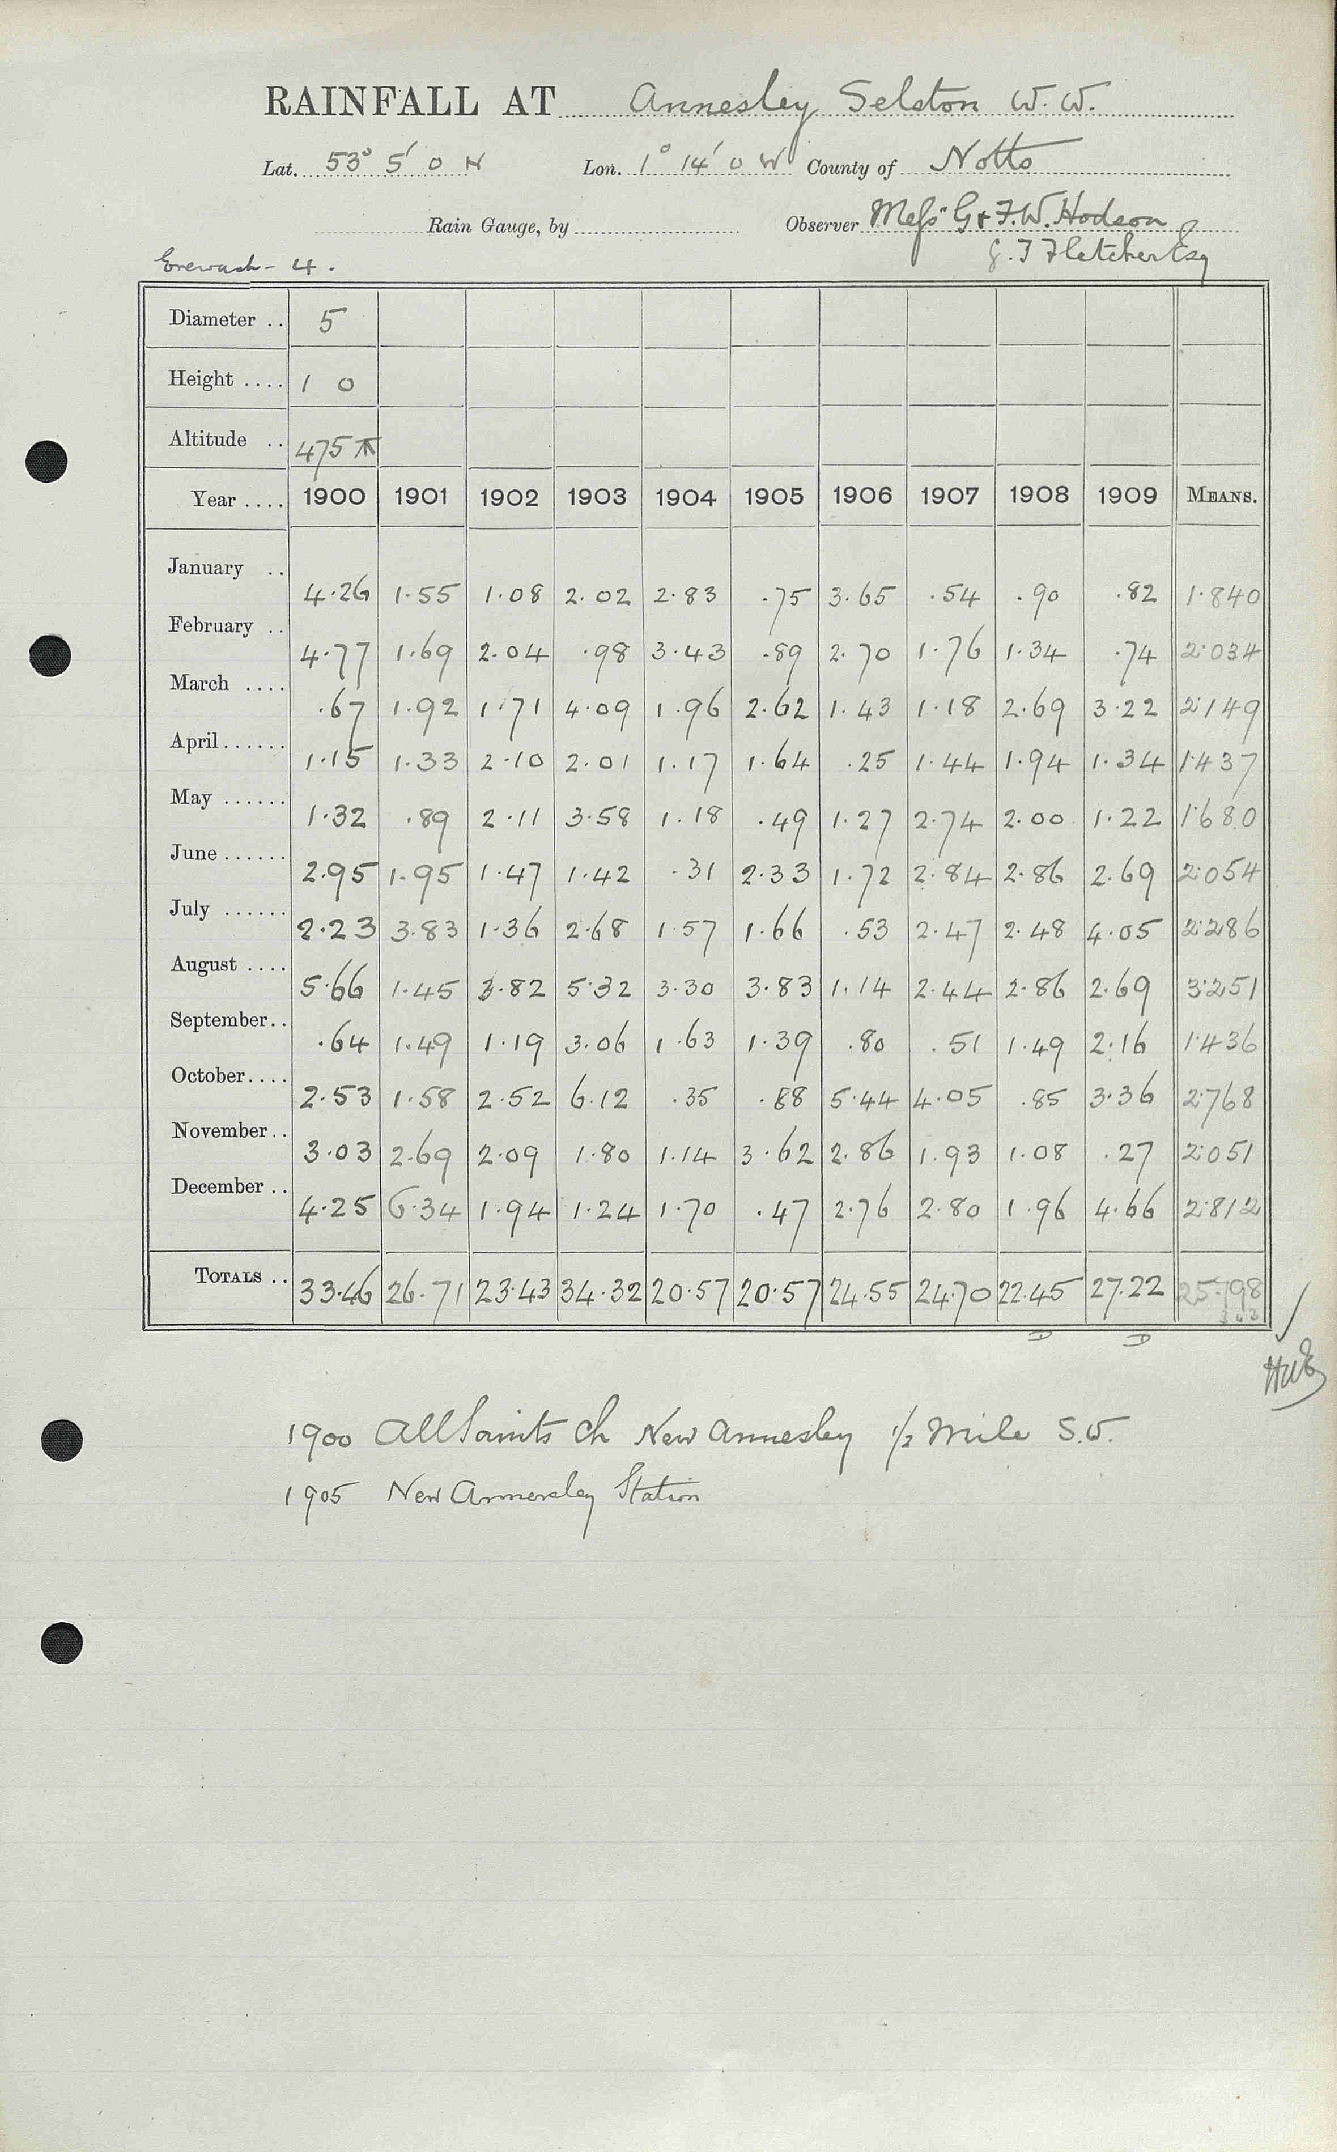 RAINFALL AT Annesley Selston W.W.
Lat. 53° 5' 0 N Lon. 1° 14' 0 W County of Notts
Rain Gauge, by Observer Messrs G & F.W. Hodson &
J.T Fletcher Esq
Erewash - 4.
Diameter .. 5
Height .... 1 0
Altitude .. 475
Year .... 1900 1901 1902 1903 1904 1905 1906 1907 1908 1909 MEANS.
January .. 4.26 1.55 1.08 2.02 2.83 .75 3.65 .54 .90 .82 1.840
February .. 4.77 1.69 2.04 .98 3.43 .89 2.70 1.76 1.34 .74 2.034
March .... .67 1.92 1.71 4.09 1.96 2.62 1.43 1.18 2.69 3.22 2.149
April...... 1.15 1.33 2.10 2.01 1.17 1.64 .25 1.44 1.94 1.34 1.437
May ...... 1.32 .89 2.11 3.58 1.18 .49 1.27 2.74 2.00 1.22 1.680
June ...... 2.95 1.95 1.47 1.42 .31 2.33 1.72 2.84 2.86 2.69 2.054
July ...... 2.23 3.83 1.36 2.68 1.57 1.66 .53 2.47 2.48 4.05 2.286
August .... 5.66 1.45 3.82 5.32 3.30 3.83 1.14 2.44 2.86 2.69 3.251
September.. .64 1.49 1.19 3.06 1.63 1.39 .80 .51 1.49 2.16 1.436
October.... 2.53 1.58 2.52 6.12 .35 .88 5.44 4.05 .85 3.36 2.768
November.. 3.03 2.69 2.09 1.80 1.14 3.62 2.86 1.93 1.08 .27 2.051
December .. 4.25 6.34 1.94 1.24 1.70 .47 2.76 2.80 1.96 4.66 2.812
TOTALS .. 33.46 26.71 23.43 34.32 20.57 20.57 24.55 24.70 22.45 27.22 25.798
D D
1900 All Saints Ch New Annesley 1/2 Mile S.W.
1905 New Annesley Station